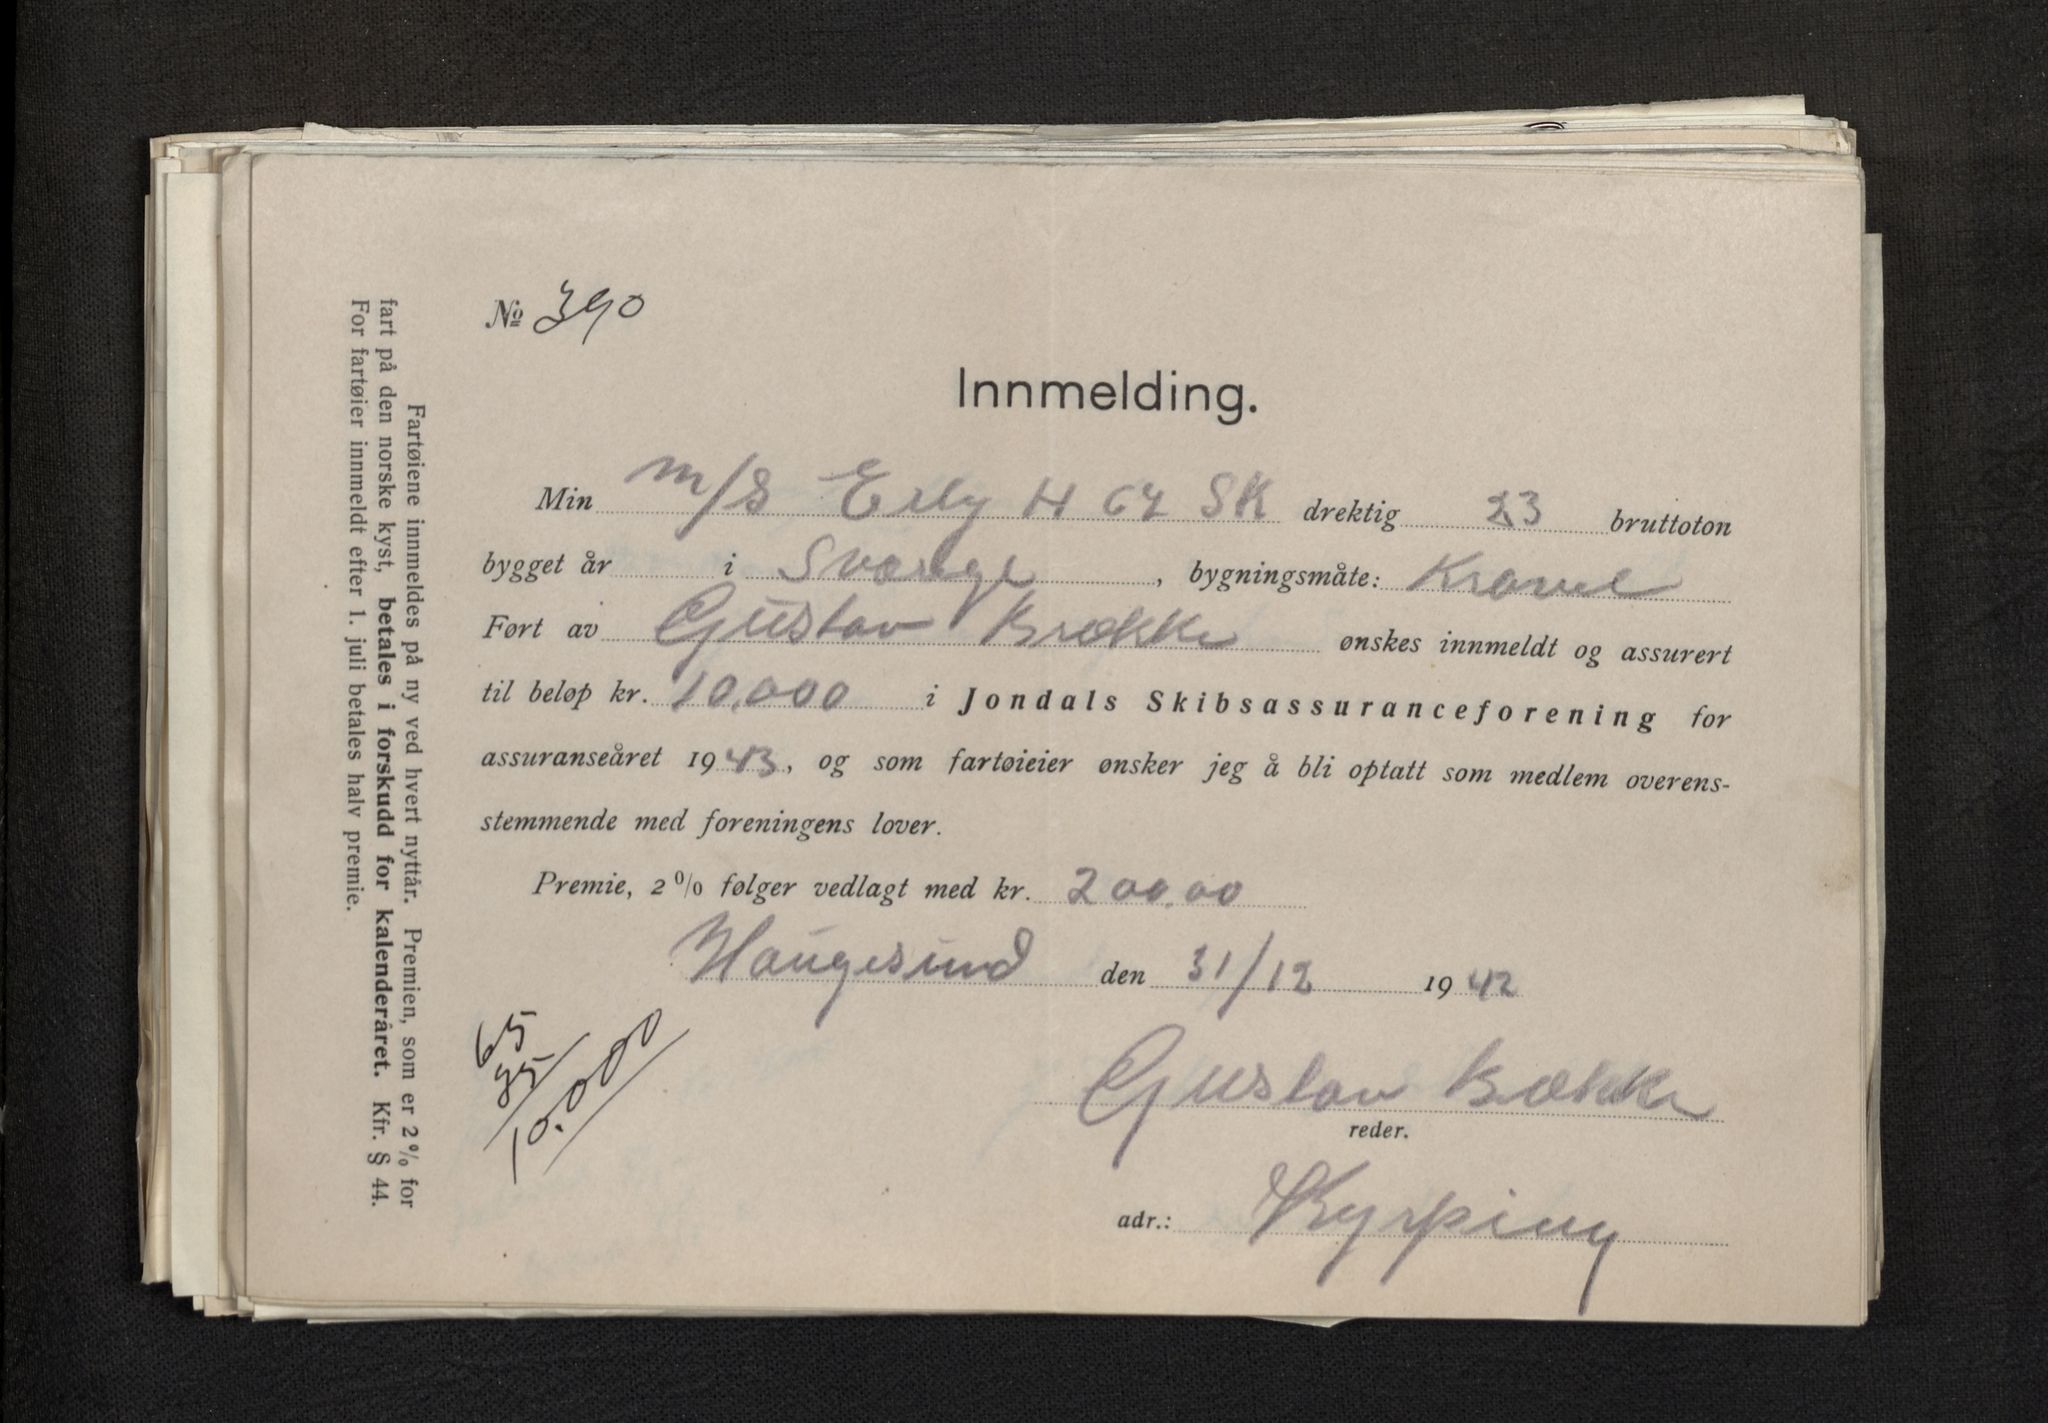 № 390
Innmelding.
Min m/s Elly H 64 SK drektig 23 bruttoton
bygget år i Sverige, bygningsmåte: Kravel
Ført av Gustav Bække ønskes innmeldt og assurert
til beløp kr. 10.000 i Jondals Skibsassuranceforening for
assuranseåret 1943, og som fartøieier ønsker jeg å bli optatt som medlem overens-
stemmende med foreningens lover.
Premie, 2% følger vedlagt med kr. 200.00
Haugesund den 31/12 1942
Gustav Bække
reder.
adr.: Kyrping
65
35
10.000
Fartøiene innmeldes på ny ved hvert nyttår. Premien, som er 2% for
fart på den norske kyst, betales i forskudd for kalenderåret. Kfr. § 44.
For fartøier innmeldt efter 1. juli betales halv premie.